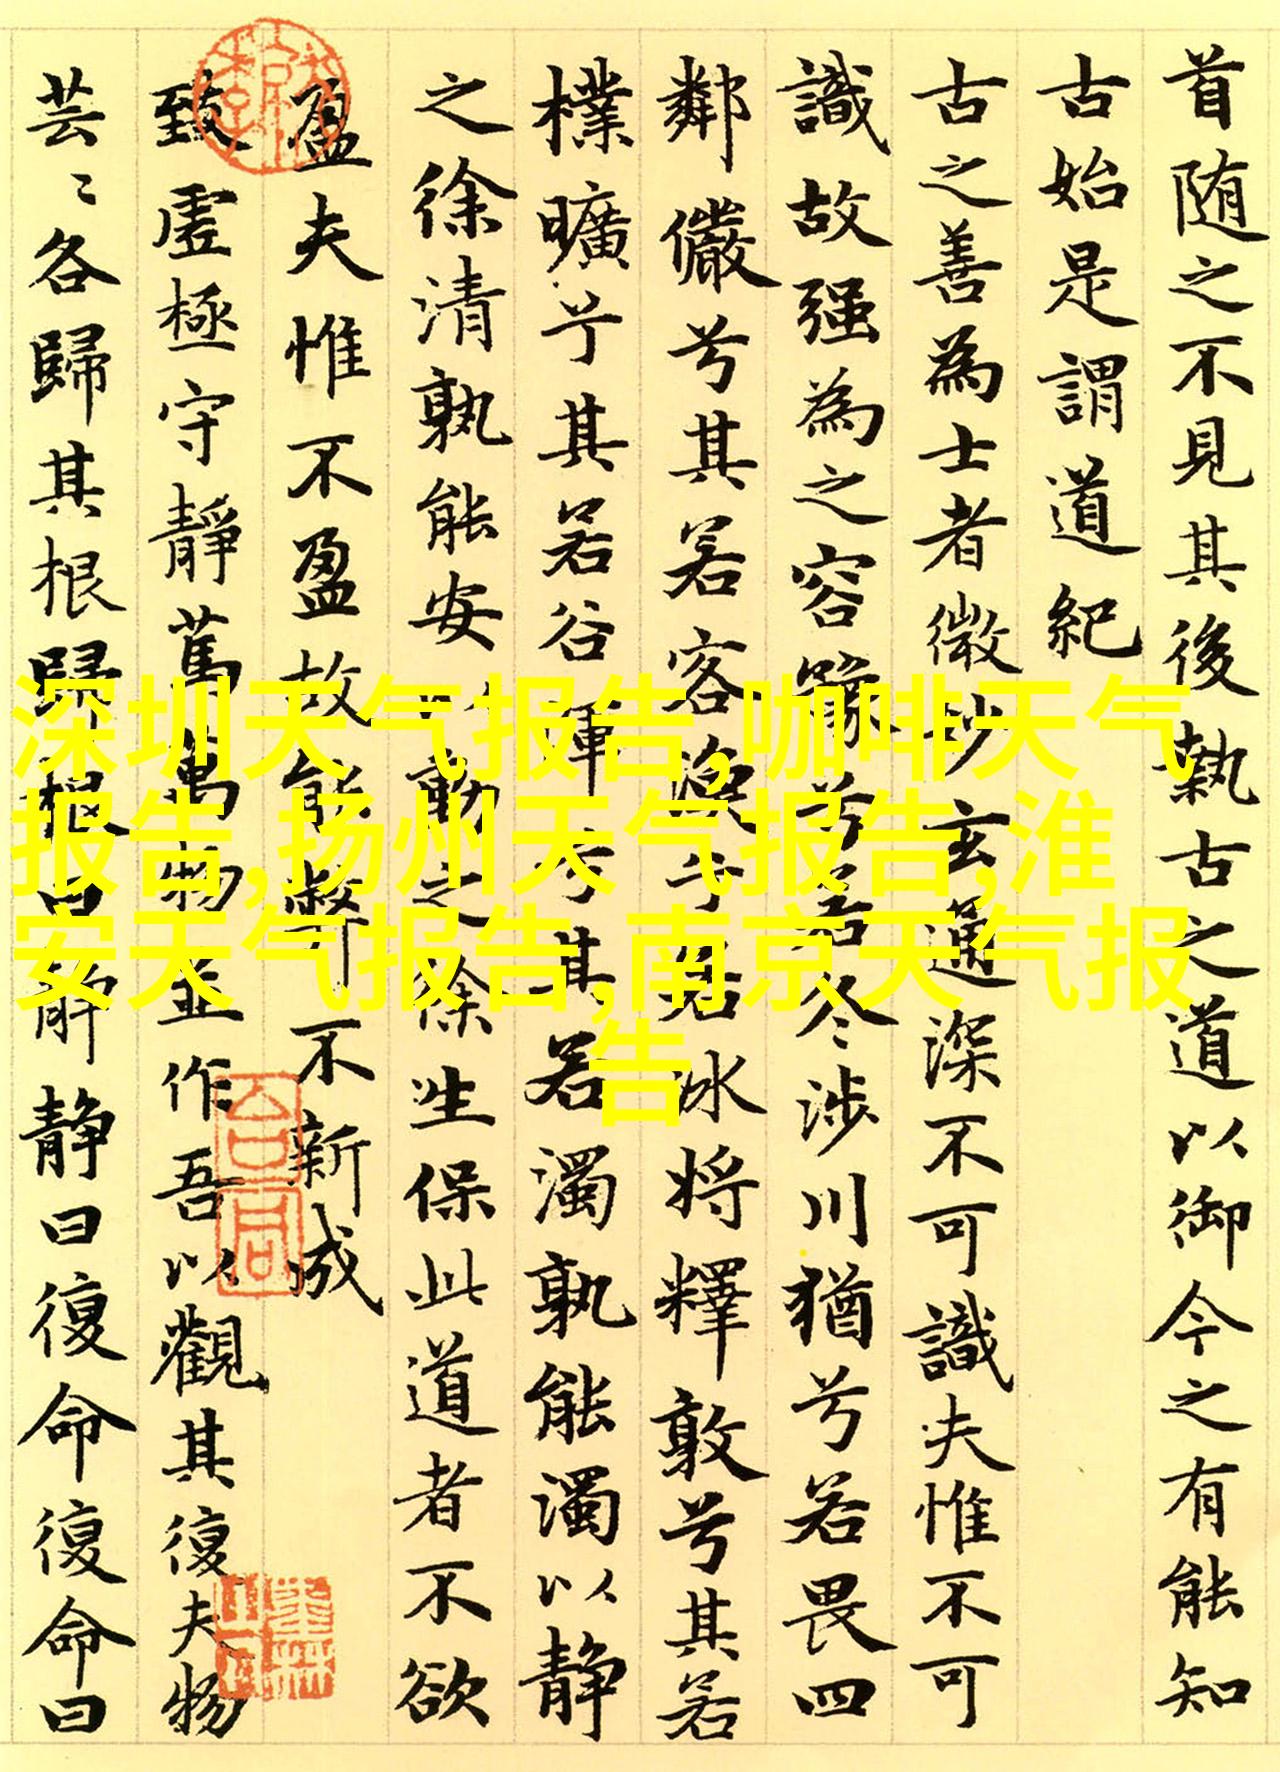 首随之不見其後執古之道以御今之有能知
古始是謂道紀
古之善為士者微妙玄通深不可識夫惟不可
識故强為之容豫兮若冬涉川猶兮若畏四
鄰儼兮其若客渙兮若冰将釋敦兮其若
樸曠兮其若谷渾兮其若濁孰能濁以静
之徐清孰能安以動之徐生保此道者不欲
盈夫惟不盈故能弊不新成
致虚極守靜篤萬物並作吾以觀其復夫物
芸〻各歸其根歸根曰静静曰復命復命曰
深圳天气报告,咖啡天气
报告,扬州天气报告,淮
安天气报告,南京天气报
告